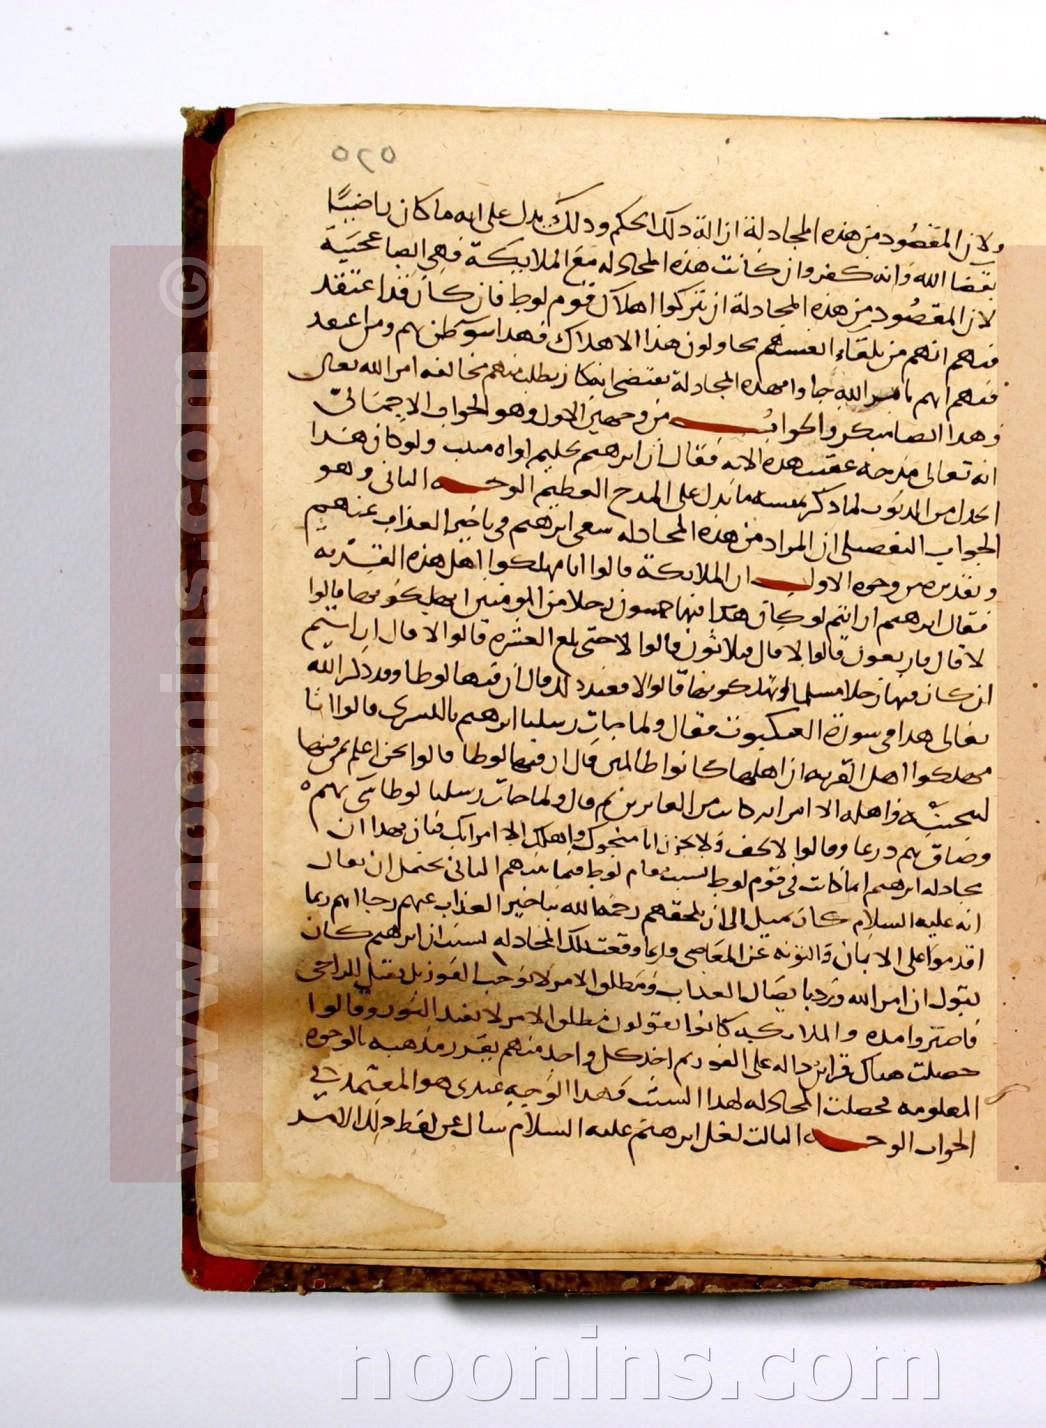 ٥٢٥
ولان المقصود من هذه المجادلة ازالة ذلك الحكم وذلك يدل على انه ما كان راضيًا
بقضا الله وانه كفر وان كانت هذه المجادله مع الملايكة فهى ايضا عجيبة
لان المقصود من هذه المجادلة ان يتركوا اهلاك قوم لوط فان كان قد اعتقد
فيهم انهم من تلقاء انفسهم يحاولون هذا الاهلاك فهذا سو ظن بهم ومن اعتقد
فيهم انهم بامر الله جاوا فهذه المجادلة تقتضى انه كان يطلب منهم مخالفه امر الله تعالى
وهذا ايضا منكر والجواب من وجهين الاول وهو الجواب الاجمالى
انه تعالى مدحه عقيب هذه الايه فقال ان ابرهيم لحليم اواه منيب ولو كان هذا
الجدل من الذنوب لما ذكر عقيبه ما يدل على المدح العظيم الوجه الثانى وهو
الجواب التفصيلى ان المراد من هذه المجادله سعى ابرهيم فى تاخير العذاب عنهم
وتقديره من وجوه الاول ان الملايكة قالوا انا مهلكوا اهل هذه القرية
فقال ابرهيم ارايتم لو كان فيها خمسون رجلا من المومنين اتهلكونها قالوا
لا قال فاربعون قالوا لا قال فثلاثون قالوا لا حتى بلغ العشرة قالوا لا قال ارايتم
ان كان فيها رجلا مسلما اتهلكونها قالوا لا فعند ذلك قال ان فيها لوطا وقد ذكر الله
تعالى هذا فى سورة العنكبوت فقال ولما جات رسلنا ابرهيم بالبشرى قالوا انا
مهلكوا اهل القريه ان اهلها كانوا ظالمين قال ان فيها لوطا قالوا نحن اعلم بمن فيها
لننجينه واهله الا امراته كانت من الغابرين ثم قال ولما جات رسلنا لوطا سى بهم
وضاق بهم ذرعا وقالوا لا تخف ولا تحزن انا منجوك واهلك الا امراتك فبان بهذا ان
مجادله ابرهيم انما كانت فى قوم لوط بسبب مقام لوط فيما بينهم الثانى يحتمل ان يقال
انه عليه السلام كان يميل الى ان تلحقهم رحمة الله بتاخير العذاب عنهم رجا انهم ربما
اقدموا على الايمان والتوبة عن المعاصى وربما وقعت تلك المجادله بسبب ان ابرهيم كان
يقول ان امر الله ورد بايصال العذاب ومطلق الامر لا يوجب الفور بل يقبل التراخى
فاصبروا مده والملايكه كانوا يقولون مطلق الامر لا يفيد الفور وقالوا
حصلت هناك قراين داله على الفور ثم اخذ كل واحد منهم يقرر مذهبه بالوجوه
المعلومه فحصلت المجادله لهذا السبب وهذا الوجه عندى هو المعتمد فى
الجواب الوجه الثالث لعل ابرهيم عليه السلام سال عن لفظ ذلك الامر
© www.noonins.com
noonins.com